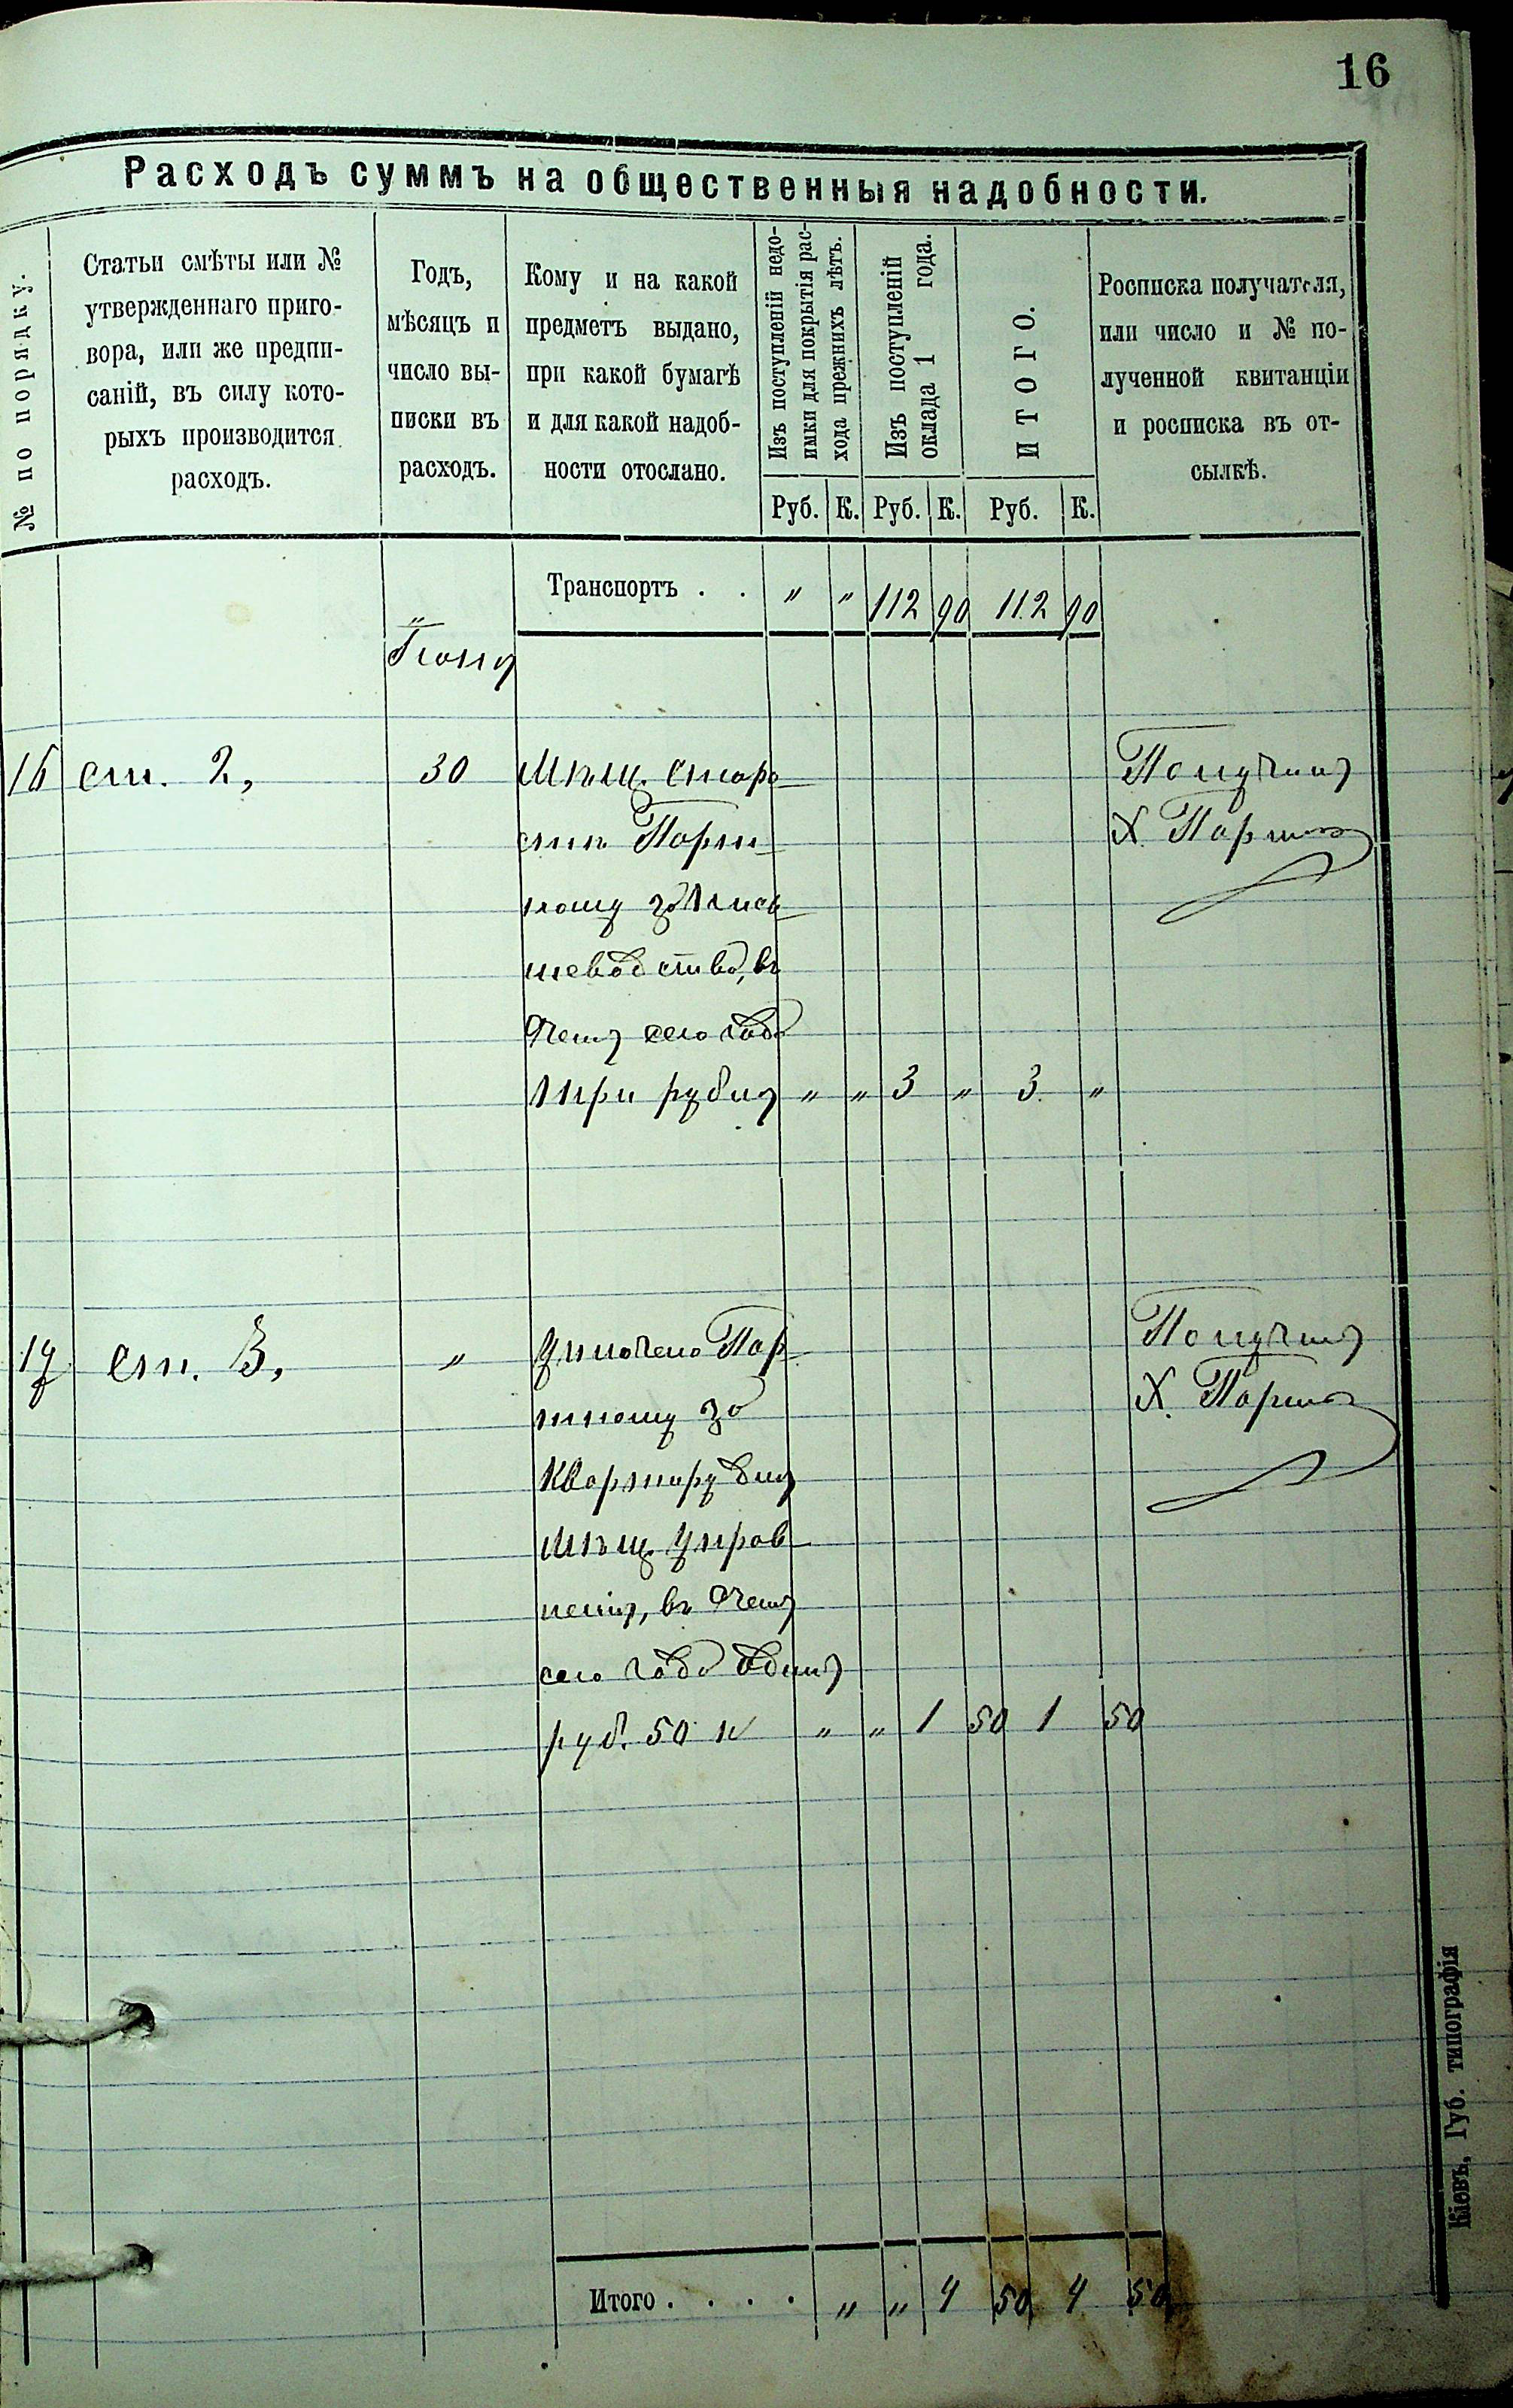 16
Расходъ суммъ на общественныя надобности.
№ по порядку.
Статьи смѣты или №
утвержденнаго приго-
вора, или же предпи-
саній, въ силу кото-
рыхъ производится
расходъ.
Годъ,
мѣсяцъ и
число вы-
писки въ
расходъ.
Кому и на какой
предметъ выдано,
при какой бумагѣ
и для какой надоб-
ности отослано.
Изъ поступленій недо-
имки для покрытія рас-
хода прежнихъ лѣтъ.
Изъ поступленій
оклада 1 года.
ИТОГО.
Росписка получателя,
или число и № по-
лученной квитанціи
и росписка въ от-
сылкѣ.
Руб. К. Руб. К. Руб. К.
Транспортъ . . " " 112 90 112 90
"
16 ст. 2, 30 Мѣщ. старо-
стѣ
за письм
оводство, въ
счетъ сего года
три рубля " " 3 " 3 "
Получилъ
Х.
17 ст. 3, " Уплочено Пор
тному за
квартиру для
мѣщ. управ-
ленія, въ счетъ
сего года одинъ
руб. 50 к " " 1 50 1 50
Получилъ
Х.
Итого . . . . " " 4 50 4 50
Кіевъ, Губ. типографія